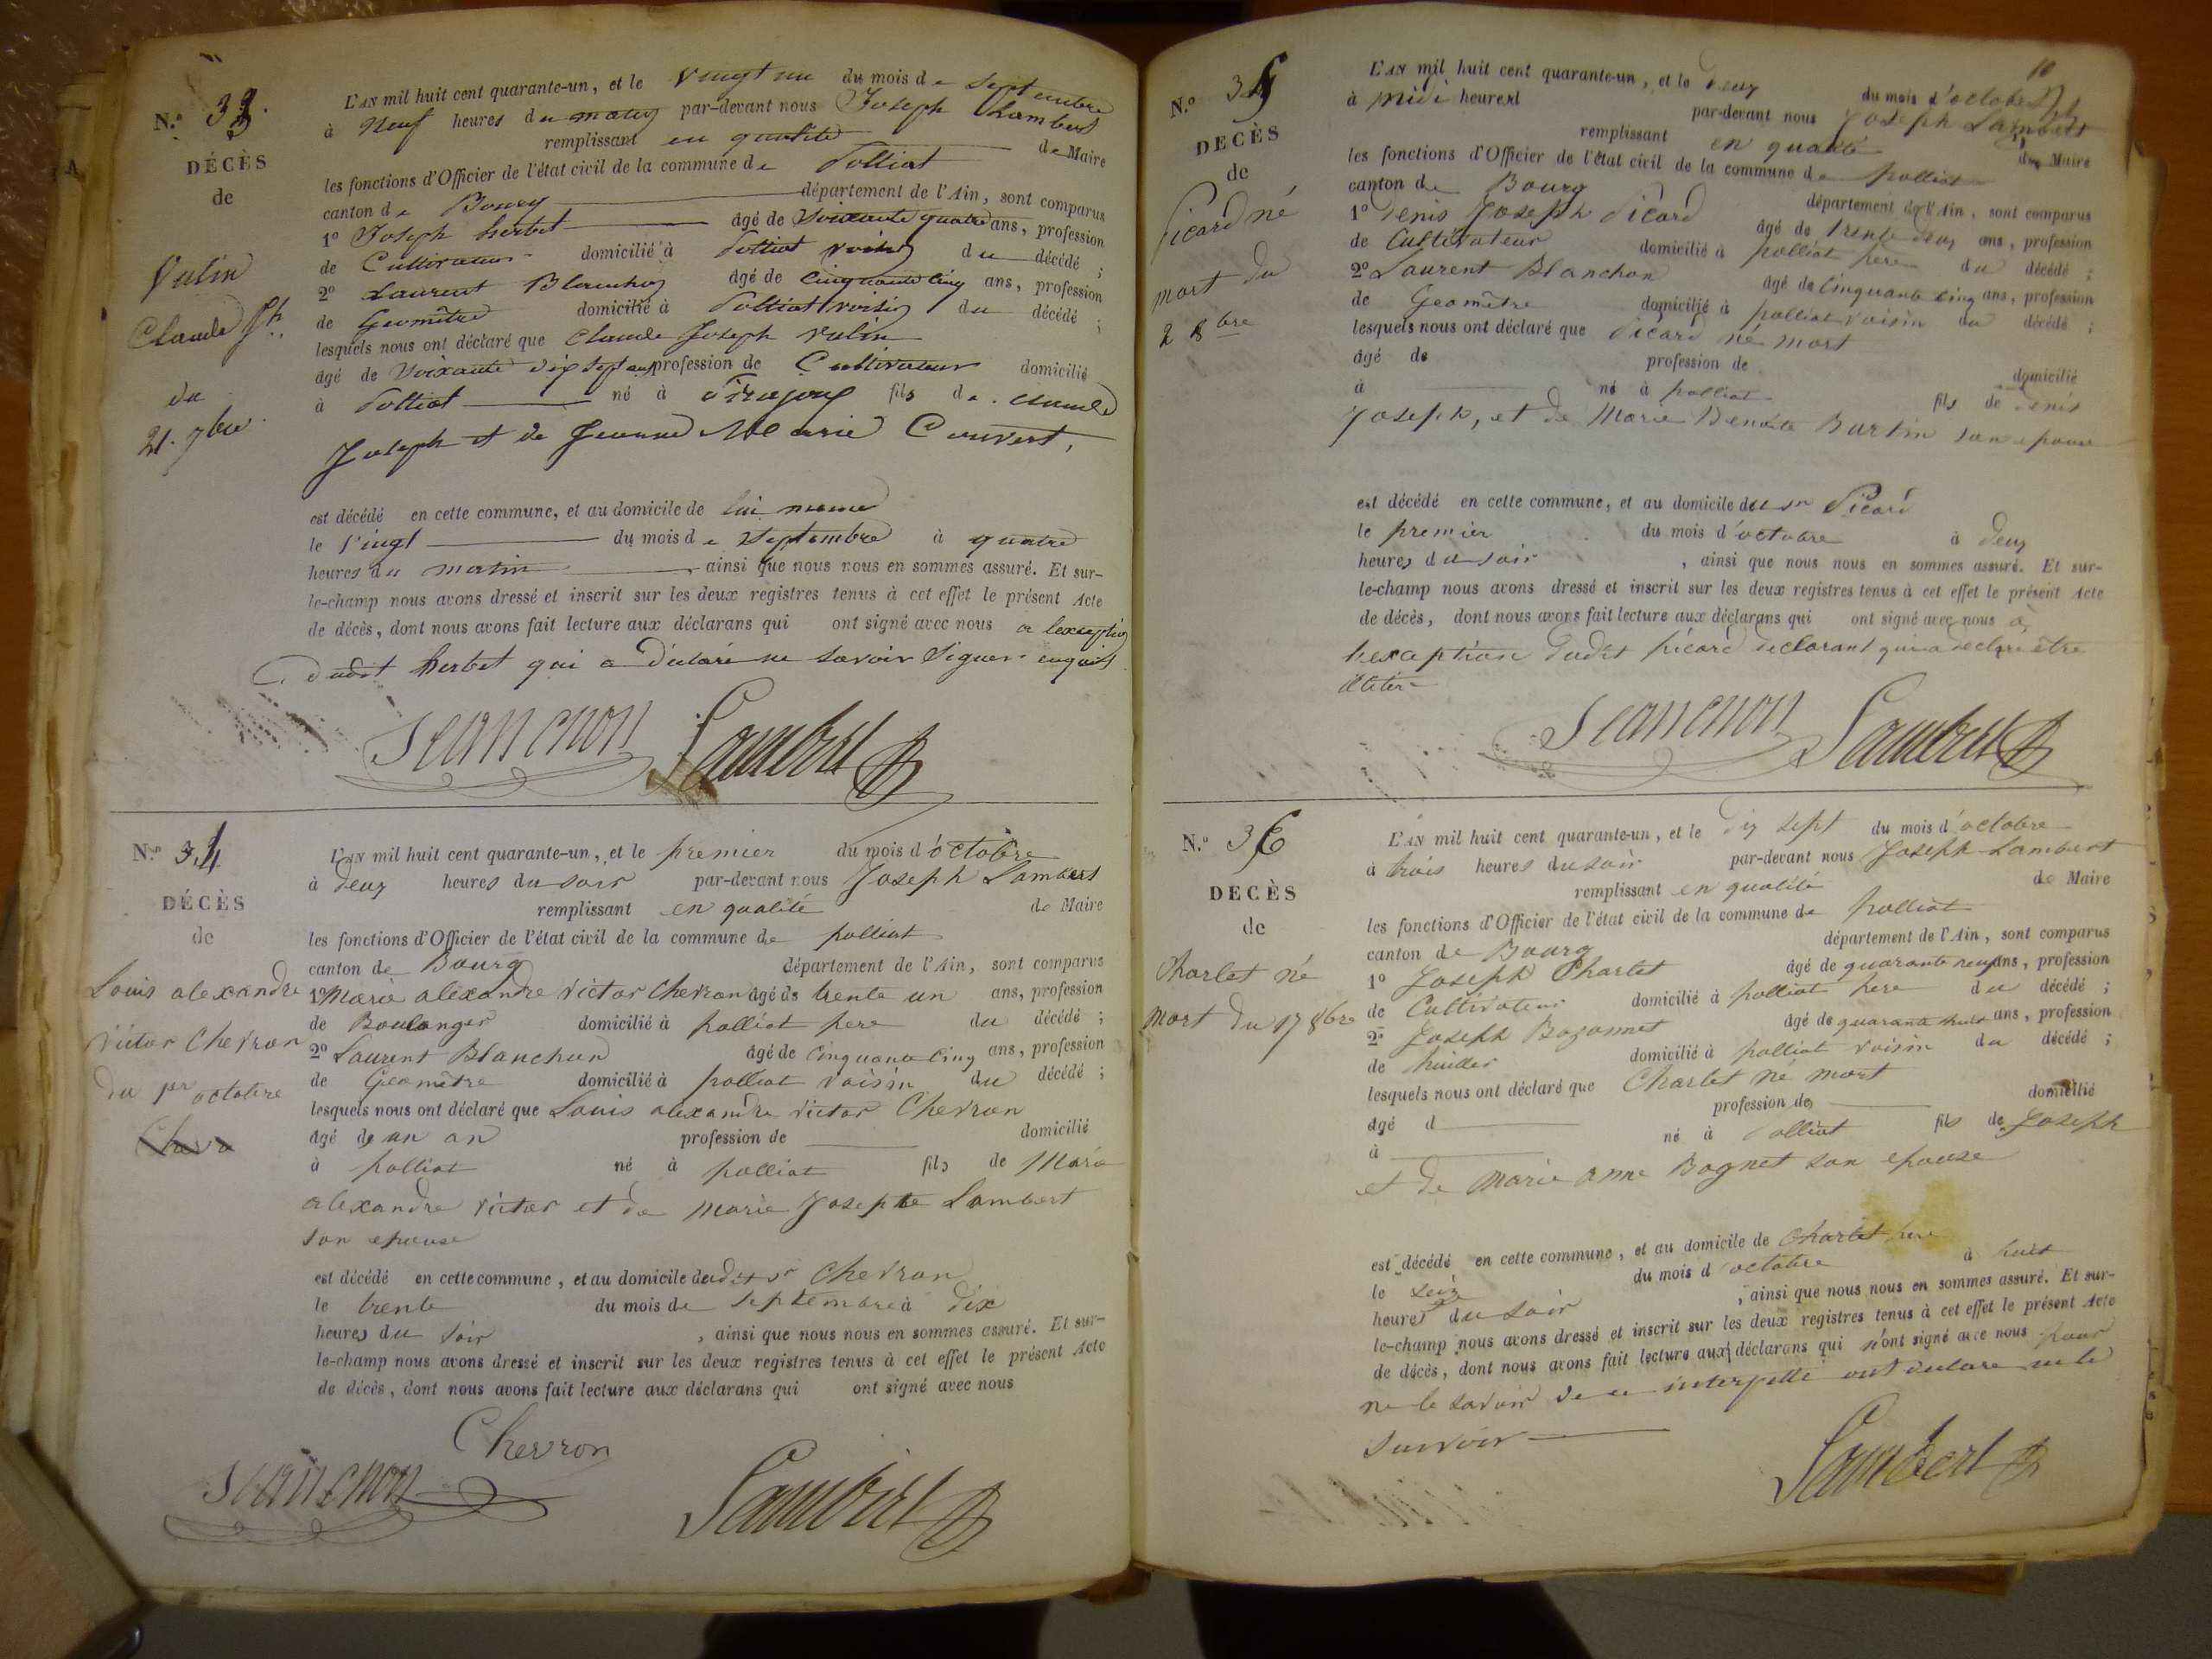 N.º 33.
DÉCÈS
de
Vulin
Claude Jh
du
21. 7bre
L'AN mil huit cent quarante-un, et le vingt un du mois de septembre
à Neuf heures du matin par-devant nous Joseph Lambert
remplissant en qualité de Maire
les fonctions d'Officier de l'état civil de la commune de Polliat
canton de Bourg département de l'Ain, sont comparus
1º Joseph herbet âgé de soixante quatre ans, profession
de Cultivateur domicilié à Polliat voisin du décédé ;
2º Laurent Blanchon âgé de cinquante cinq ans, profession
de Geomètre domicilié à Polliat voisin du décédé ;
lesquels nous ont déclaré que claude Joseph vulin
âgé de soixante dix sept ans profession de Cultivateur domicilié
à Polliat né à fils de claude
Joseph et de Jeanne Marie Couvert,
est décédé en cette commune, et au domicile de lui meme
le vingt du mois de septembre à quatre
heures du matin ainsi que nous nous en sommes assuré. Et sur-
le-champ nous avons dressé et inscrit sur les deux registres tenus à cet effet le présent Acte
de décès, dont nous avons fait lecture aux déclarans qui ont signé avec nous a lexception
dudit herbet qui a déclaré ne savoir signer enquis
Blanchon Lambert
N.º 34
DÉCÈS
de
Louis alexandre
victor Chevron
du 1er octobre
L'AN mil huit cent quarante-un, et le premier du mois d'octobre
à deux heures du soir par-devant nous Joseph Lambert
remplissant en qualité de Maire
les fonctions d'Officier de l'état civil de la commune de polliat
canton de Bourg département de l'Ain, sont comparus
1º Marie alexandre victor Chevron âgé de trente un ans, profession
de Boulanger domicilié à polliat pere du décédé ;
2º Laurent Blanchon âgé de cinquante cinq ans, profession
de Geomètre domicilié à polliat voisin du décédé ;
lesquels nous ont déclaré que Louis alexandre victor Chevron
âgé de un an profession de domicilié
à polliat né à polliat fils de Marie
alexandre victor et de Marie Josephte Lambert
son epouse
est décédé en cette commune, et au domicile dudit sr Chevron
le trente du mois de septembre à dix
heures du soir , ainsi que nous nous en sommes assuré. Et sur-
le-champ nous avons dressé et inscrit sur les deux registres tenus à cet effet le présent Acte
de décès, dont nous avons fait lecture aux déclarans qui ont signé avec nous
Chevron
Blanchon Lambert
10
N.º 35
DECÈS
de
Picard né
mort du
2 8bre
L'AN mil huit cent quarante-un, et le deux du mois d'octobre
à midi heures par-devant nous Joseph Lambert
remplissant en qualité de Maire
les fonctions d'Officier de l'état civil de la commune de polliat
canton de Bourg département de l'Ain, sont comparus
1º Denis Joseph Picard âgé de trente deux ans, profession
de Cultivateur domicilié à polliat pere du décédé ;
2º Laurent Blanchon âgé de cinquante cinq ans, profession
de Geomètre domicilié à polliat voisin du décédé ;
lesquels nous ont déclaré que Picard né mort
âgé de profession de domicilié
à né à polliat fils de Denis
Joseph, et de Marie Benoite Burtin son epouse
est décédé en cette commune, et au domicile du sr Picard
le premier du mois d'octobre à deux
heures du soir , ainsi que nous nous en sommes assuré. Et sur-
le-champ nous avons dressé et inscrit sur les deux registres tenus à cet effet le présent Acte
de décès, dont nous avons fait lecture aux déclarans qui ont signé avec nous à
l'exception dudit picard declarant qui a declaré être
illitéré
Blanchon Lambert
N.º 36
DECÈS
de
Charlet né
mort du 17 8bre
L'AN mil huit cent quarante-un, et le dix sept du mois d'octobre
à trois heures du soir par-devant nous Joseph Lambert
remplissant en qualité de Maire
les fonctions d'Officier de l'état civil de la commune de polliat
canton de Bourg département de l'Ain, sont comparus
1º Joseph Charlet âgé de quarante neuf ans, profession
de Cultivateur domicilié à polliat pere du décédé ;
2º Joseph Bozonnet âgé de quarante huit ans, profession
de huilier domicilié à polliat voisin du décédé ;
lesquels nous ont déclaré que Charlet né mort
âgé d profession de domicilié
à né à Polliat fils de Joseph
et de Marie anne Bognet son epouse
est décédé en cette commune, et au domicile de Charlet pere
le seize du mois d'octobre à huit
heures du soir , ainsi que nous nous en sommes assuré. Et sur-
le-champ nous avons dressé et inscrit sur les deux registres tenus à cet effet le présent Acte
de décès, dont nous avons fait lecture aux déclarans qui n'ont signé avec nous pour
ne le savoir de ce interpellé ont declare ne le
savoir
Lambert